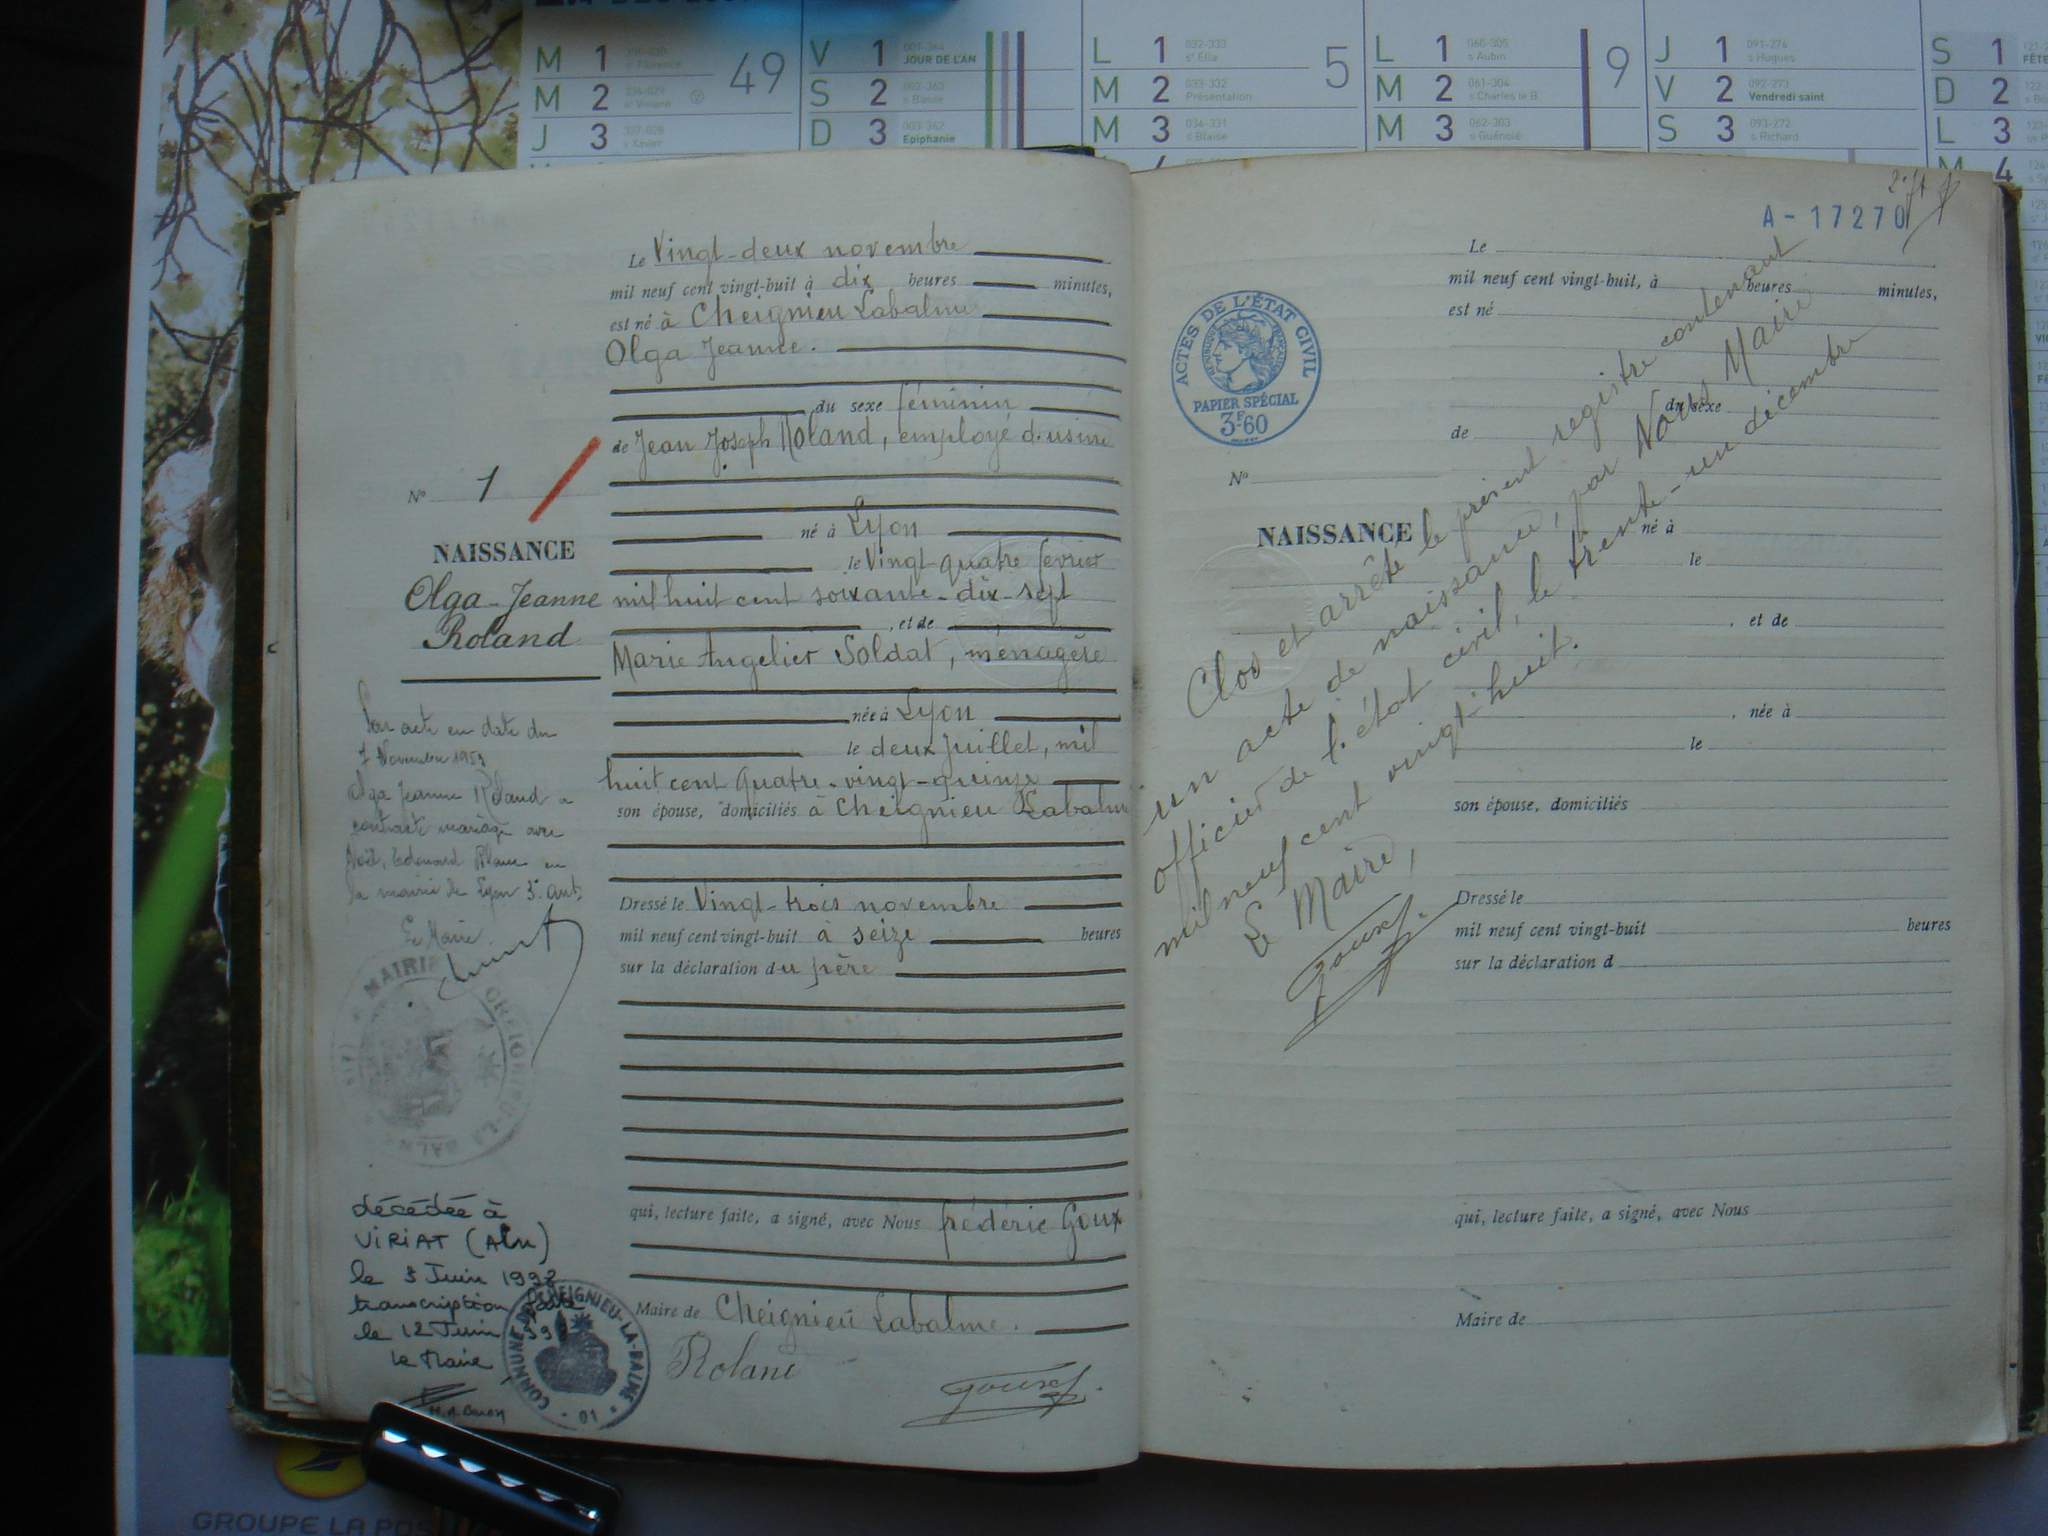 M 1 49
M 2
J 3
V 1 JOUR DE L'AN
S 2 s Basile
D 3 Epiphanie
L 1 032-333 Ella 5
M 2 033-332 Présentation
M 3 034-331 s Blaise
L 1 060-305 s Aubin 9
M 2 061-304 s Charles le B.
M 3 062-303 s Guénolé
J 1 091-274 s Hugues
V 2 092-273 Vendredi saint
S 3 093-272 s Richard
S 1
D 2
L 3
M 4
Le Vingt-deux novembre
mil neuf cent vingt-huit à dix heures minutes,
est né à Cheignieu Labalme
Olga Jeanne.
du sexe féminin
de Jean Joseph Roland, employé d'usine
né à Lyon
le Vingt quatre fevrier
mil huit cent soixante-dix-sept
, et de
Marie Angelier Soldat, ménagère
née à Lyon
le deux Juillet, mil
huit cent quatre-vingt-quinze
son épouse, domiciliés à Cheignieu Labalme
Dressé le Vingt-trois novembre
mil neuf cent vingt-huit à seize heures
sur la déclaration du père
qui, lecture faite, a signé, avec Nous frédéric Goux
Maire de Cheignieu Labalme.
Roland
N° 1
NAISSANCE
Olga-Jeanne
Roland
Par acte en date du
7 Novembre 1953
Olga Jeanne Roland a
contracté mariage avec
Noël, Edouard en
la mairie de Lyon 3e arrt.
Le Maire
MAIRIE
décédée à
VIRIAT (Ain)
le 3 Juin 1992
transcription faite
le 12 Juin
le Maire
COMMUNE DE CHEIGNIEU-LA-BALME 01
A-17270
ACTES DE L'ÉTAT CIVIL
RÉPUBLIQUE FRANÇAISE
PAPIER SPÉCIAL
3F60
Le
mil neuf cent vingt-huit, à heures minutes,
est né
du sexe
de
N°
NAISSANCE
né à
le
, et de
, née à
le
son épouse, domiciliés
Dressé le
mil neuf cent vingt-huit heures
sur la déclaration d
qui, lecture faite, a signé, avec Nous
Maire de
Clos et arrêté le présent registre contenant
un acte de naissance, par Nous Maire
officier de l'état civil, le trente-un décembre
mil neuf cent vingt-huit.
Le Maire,
GROUPE LA POS